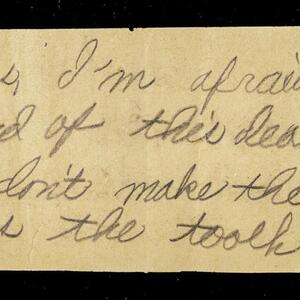 s, I'm afrai
d of this dea
don't make the
s the tooth